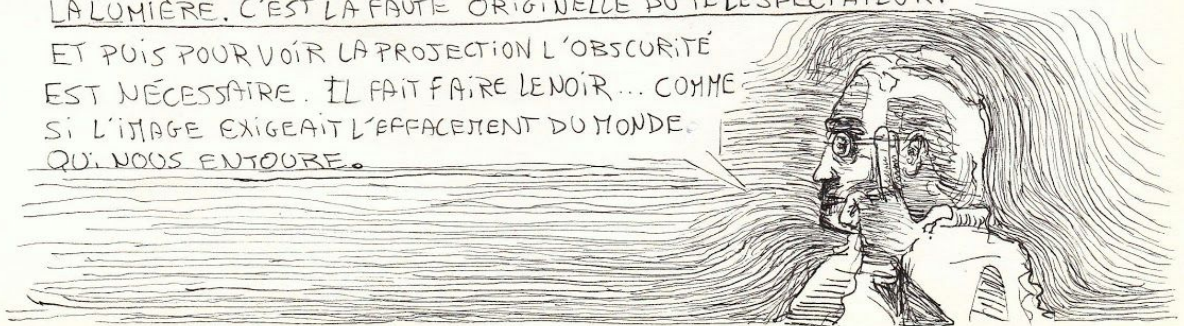 LA LUMIÈRE. C'EST LA FAUTE ORIGINELLE DU TELESPECTATEUR.
ET PUIS POUR VOIR LA PROJECTION L'OBSCURITÉ
EST NÉCESSAIRE. IL FAIT FAIRE LE NOIR... COMME
SI L'IMAGE EXIGEAIT L'EFFACEMENT DU MONDE
QUI NOUS ENTOURE.